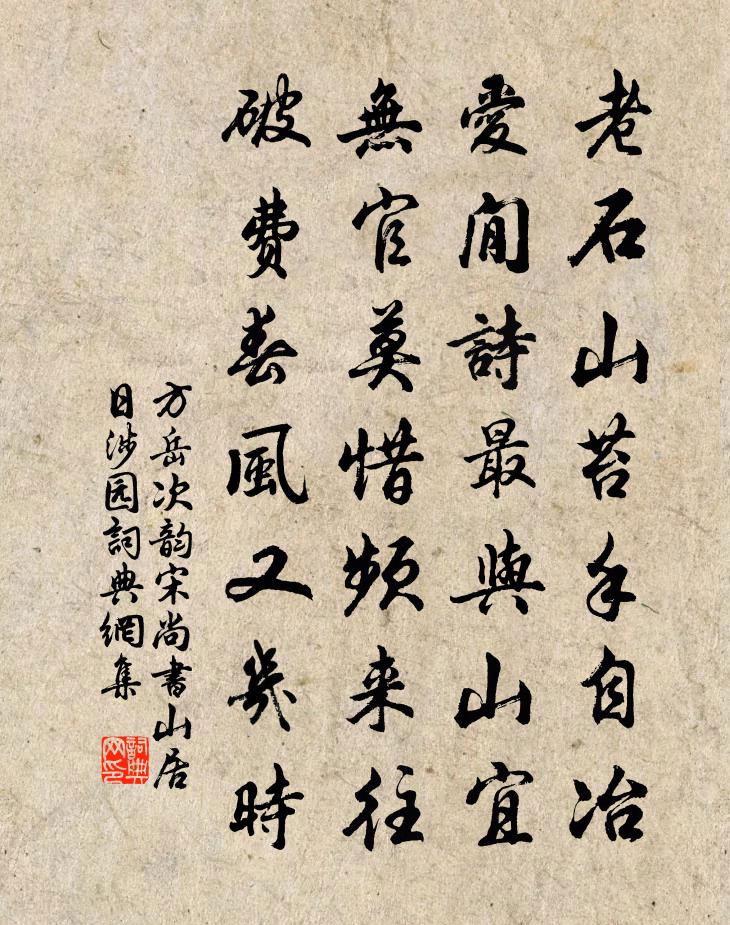 老石山苔手自冶
愛閒詩最與山宜
無官莫惜頻来往
破費春風又幾時
方岳次韵宋尚書山居
日涉园詞典網集
詞典
网印